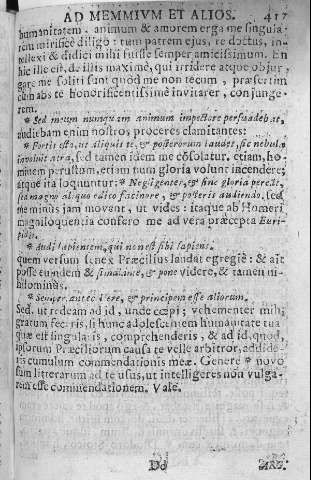 AD MEMMIVM ET ALIOS. 417
humanitatem. animum & amorem erga me singula-
rem mirifice diligo: tum patrem ejus, re doctus, in-
tellexi & didici mihi fuisse semper amicissimum. En
hic ille est, de illis maxime, qui irridere atque objur-
gare me soliti sunt quod me non tecum, præsertim
cum abs te honorificentissime invitarer, conjunge-
rem.
* Sed meum nunquam animum impectore persuadebat,
audibam enim nostros proceres clamitantes:
* Fortis esto, ut aliquis te, & posterorum laudet, sic nebula
involvit atra, sed tamen idem me cōsolatur. etiam, ho-
minem perustum, etiam num gloria volunt incendere;
atque ita loquuntur: * Negligenter, & sine gloria pereāt,
sed magno aliquo edito facinore, & posteris audiendo, sed
me minus jam movent, ut vides: itaque ab Homeri
magniloquentia confero me ad vera præcepta Euri-
pidis.
* Audi sapientem, qui non est sibi sapiens.
quem versum senex Præcilius laudat egregiè: & ait
posse eundem & simul ante, & pone videre, & tamen ni-
hilominus.
* Semper antecellere, & principem esse aliorum.
Sed, ut redeam ad id, unde cœpi; vehementer mihi
gratum feceris, si hunc adolescentem humanitate tua
quæ est singularis, comprehenderis, & ad id, quod,
ipsorum Præciliorum causa te velle arbitror, addide-
ris cumulum commendationis meæ. Genere * novo
sum litterarum ad te usus, ut intelligeres non vulga-
rem esse commendationem. Vale.
Dd